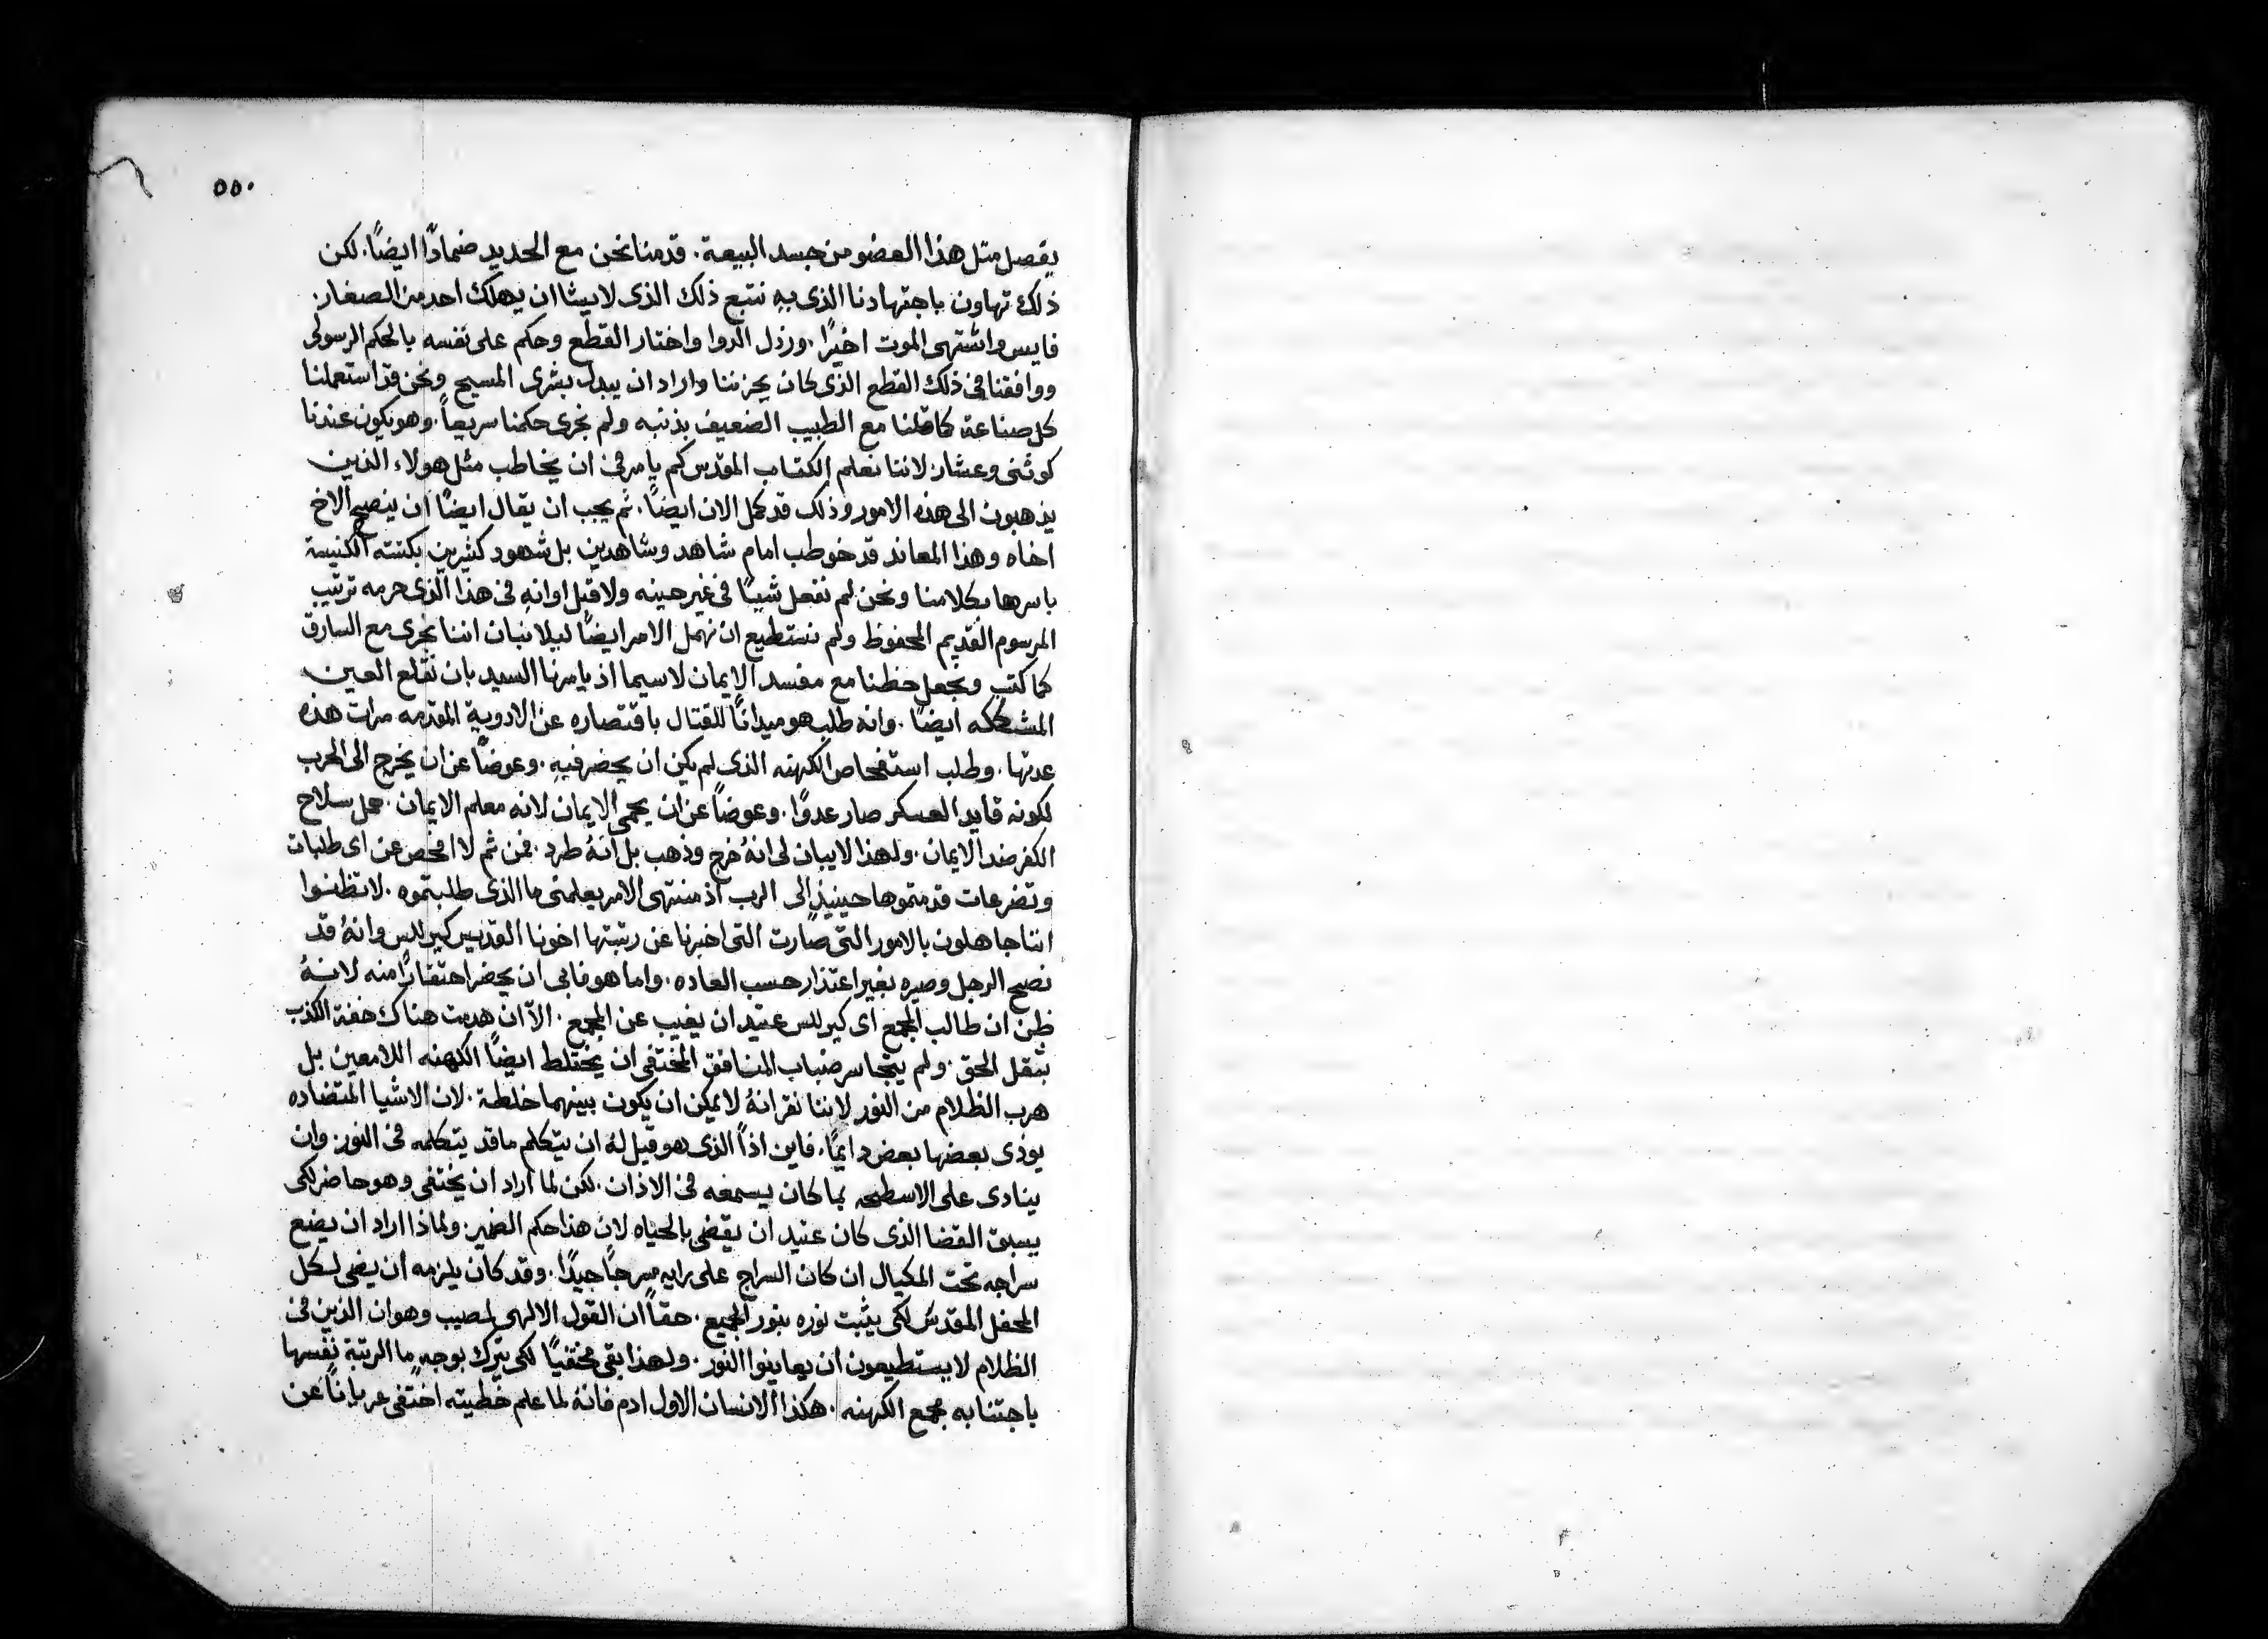 ٥٥٠
يفصل مثل هذا العضو من جسد البيعة. قدمنا نحن مع الحديد ضمادًا ايضًا. لكن
ذلك تهاون باجتهادنا الذى به نتبع ذلك الذى لا يشا ان يهلك احد من الصغار.
فايس واشتهى الموت اخيرًا. ورذل الدوا واختار القطع وحكم على نفسه بالحكم الرسولى
ووافقنا فى ذلك القطع الذى كان يحزننا واراد ان يبدل بشرى المسيح ونحن قد استعملنا
كل صناعة كما قلنا مع الطبيب الضعيف بذنبه ولم نجرى حكمنا سريعاً. وهو يكون عندنا
كوثنى وعشار. لاننا نعلم الكتاب المقدس كم يامر فى ان يخاطب مثل هولاء الذين
يذهبون الى هذه الامور وذلك قد كمل الان ايضاً. ثم يجب ان يقال ايضاً ان ينصح الاخ
اخاه وهذا المعاند قد خوطب امام شاهد وشاهدين بل شهود كثيرين بكتته الكنيسة
باسرها بكلامنا ونحن لم نفعل شيًا فى غير حينه ولا قبل اوانه فى هذا الذى حرمه ترتيب
المرسوم القديم المحفوظ ولم نستطيع ان نهمل الامر ايضاً ليلا نبان اننا نجرى مع السارق
كما كتب ونجعل حظنا مع مفسد الايمان لاسيما اذ يامرنا السيد بان نقلع العين
المشككه ايضًا. وانه طلب هو ميدانًا للقتال باقتصاره عن الادوية المقدمه مرات هذه
عدتها. وطلب استفحاص الكهنه الذى لم يكن ان يحضر فيه. وعوضًا عن ان يخرج الى الحرب
لكونه قايد العسكر صار عدوًا. وعوضاً عن ان يحمى الايمان لانه معلم الايمان. حمل سلاح
الكفر ضد الايمان. ولهذا لا يبان لى انهُ خرج وذهب بل انهُ طرد. فمن ثم لا افحص عن اى طلبات
وتضرعات قدمتموها حينيذٍ الى الرب اذ منتهى الامر يعلمنى ما الذى طلبتموه. لا تظنوا
اننا جاهلون بالامور التى صارت التى اخبرنا عن رتبتها اخونا القديس كيرللس وانهُ قد
نصح الرجل وصيره بغير اعتذار حسب العاده. واما هو فابى ان يحضر احتقارًا منه لانهُ
ظن ان طالب المجمع اى كيرللس عتيد ان يغيب عن المجمع. الاّ ان هربت هناك خفة الكذب
بثقل الحق. ولم يتجاسر ضباب المنافق المختفى ان يختلط ايضًا الكهنه اللامعين بل
هرب الظلام من النور لاننا نقر انهُ لا يمكن ان يكون بينهما خلطة. لان الاشيا المتضاده
يوذى بعضها بعض دايمًا. فاين اذًا الذى هو قيل لهُ ان يتكلم ما قد يتكلمه فى النور. وان
ينادى على الاسطحه بما كان يسمعه فى الاذان. لكن لما اراد ان يختفى وهو حاضر لكى
يسبق القضا الذى كان عتيد ان يقضى بالحياه لان هذا حكم الضمير. ولماذا اراد ان يضع
سراجه تحت المكيال ان كان السراج على رايه مسرجًا جيدًا. وقد كان يلزمه ان يضى لكل
المحفل المقدس لكى يثبت نوره بنور الجميع. حقاً ان القول الالهى لمصيب وهو ان الذين فى
الظلام لا يستطيعون ان يعاينوا النور. ولهذا بقى مختفيًا لكى يترك بوجهٍ ما الرتبة نفسها
باجتنابه مجمع الكهنه. هكذا الانسان الاول ادم فانهُ لما علم خطيته اختفى عرياناً عن